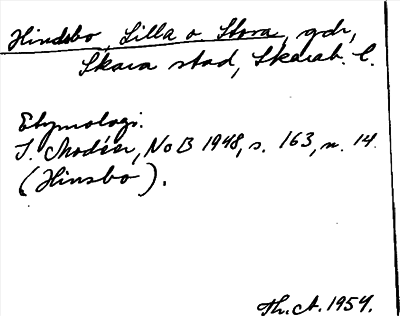 Hindsbo, Lilla o. Stora, gdr,
Skara stad, Skarab. l.
Etymologi.
I. Modéer, NoB 1948, s. 163, n. 14.
(Hinsbo).
Th. A. 1954.